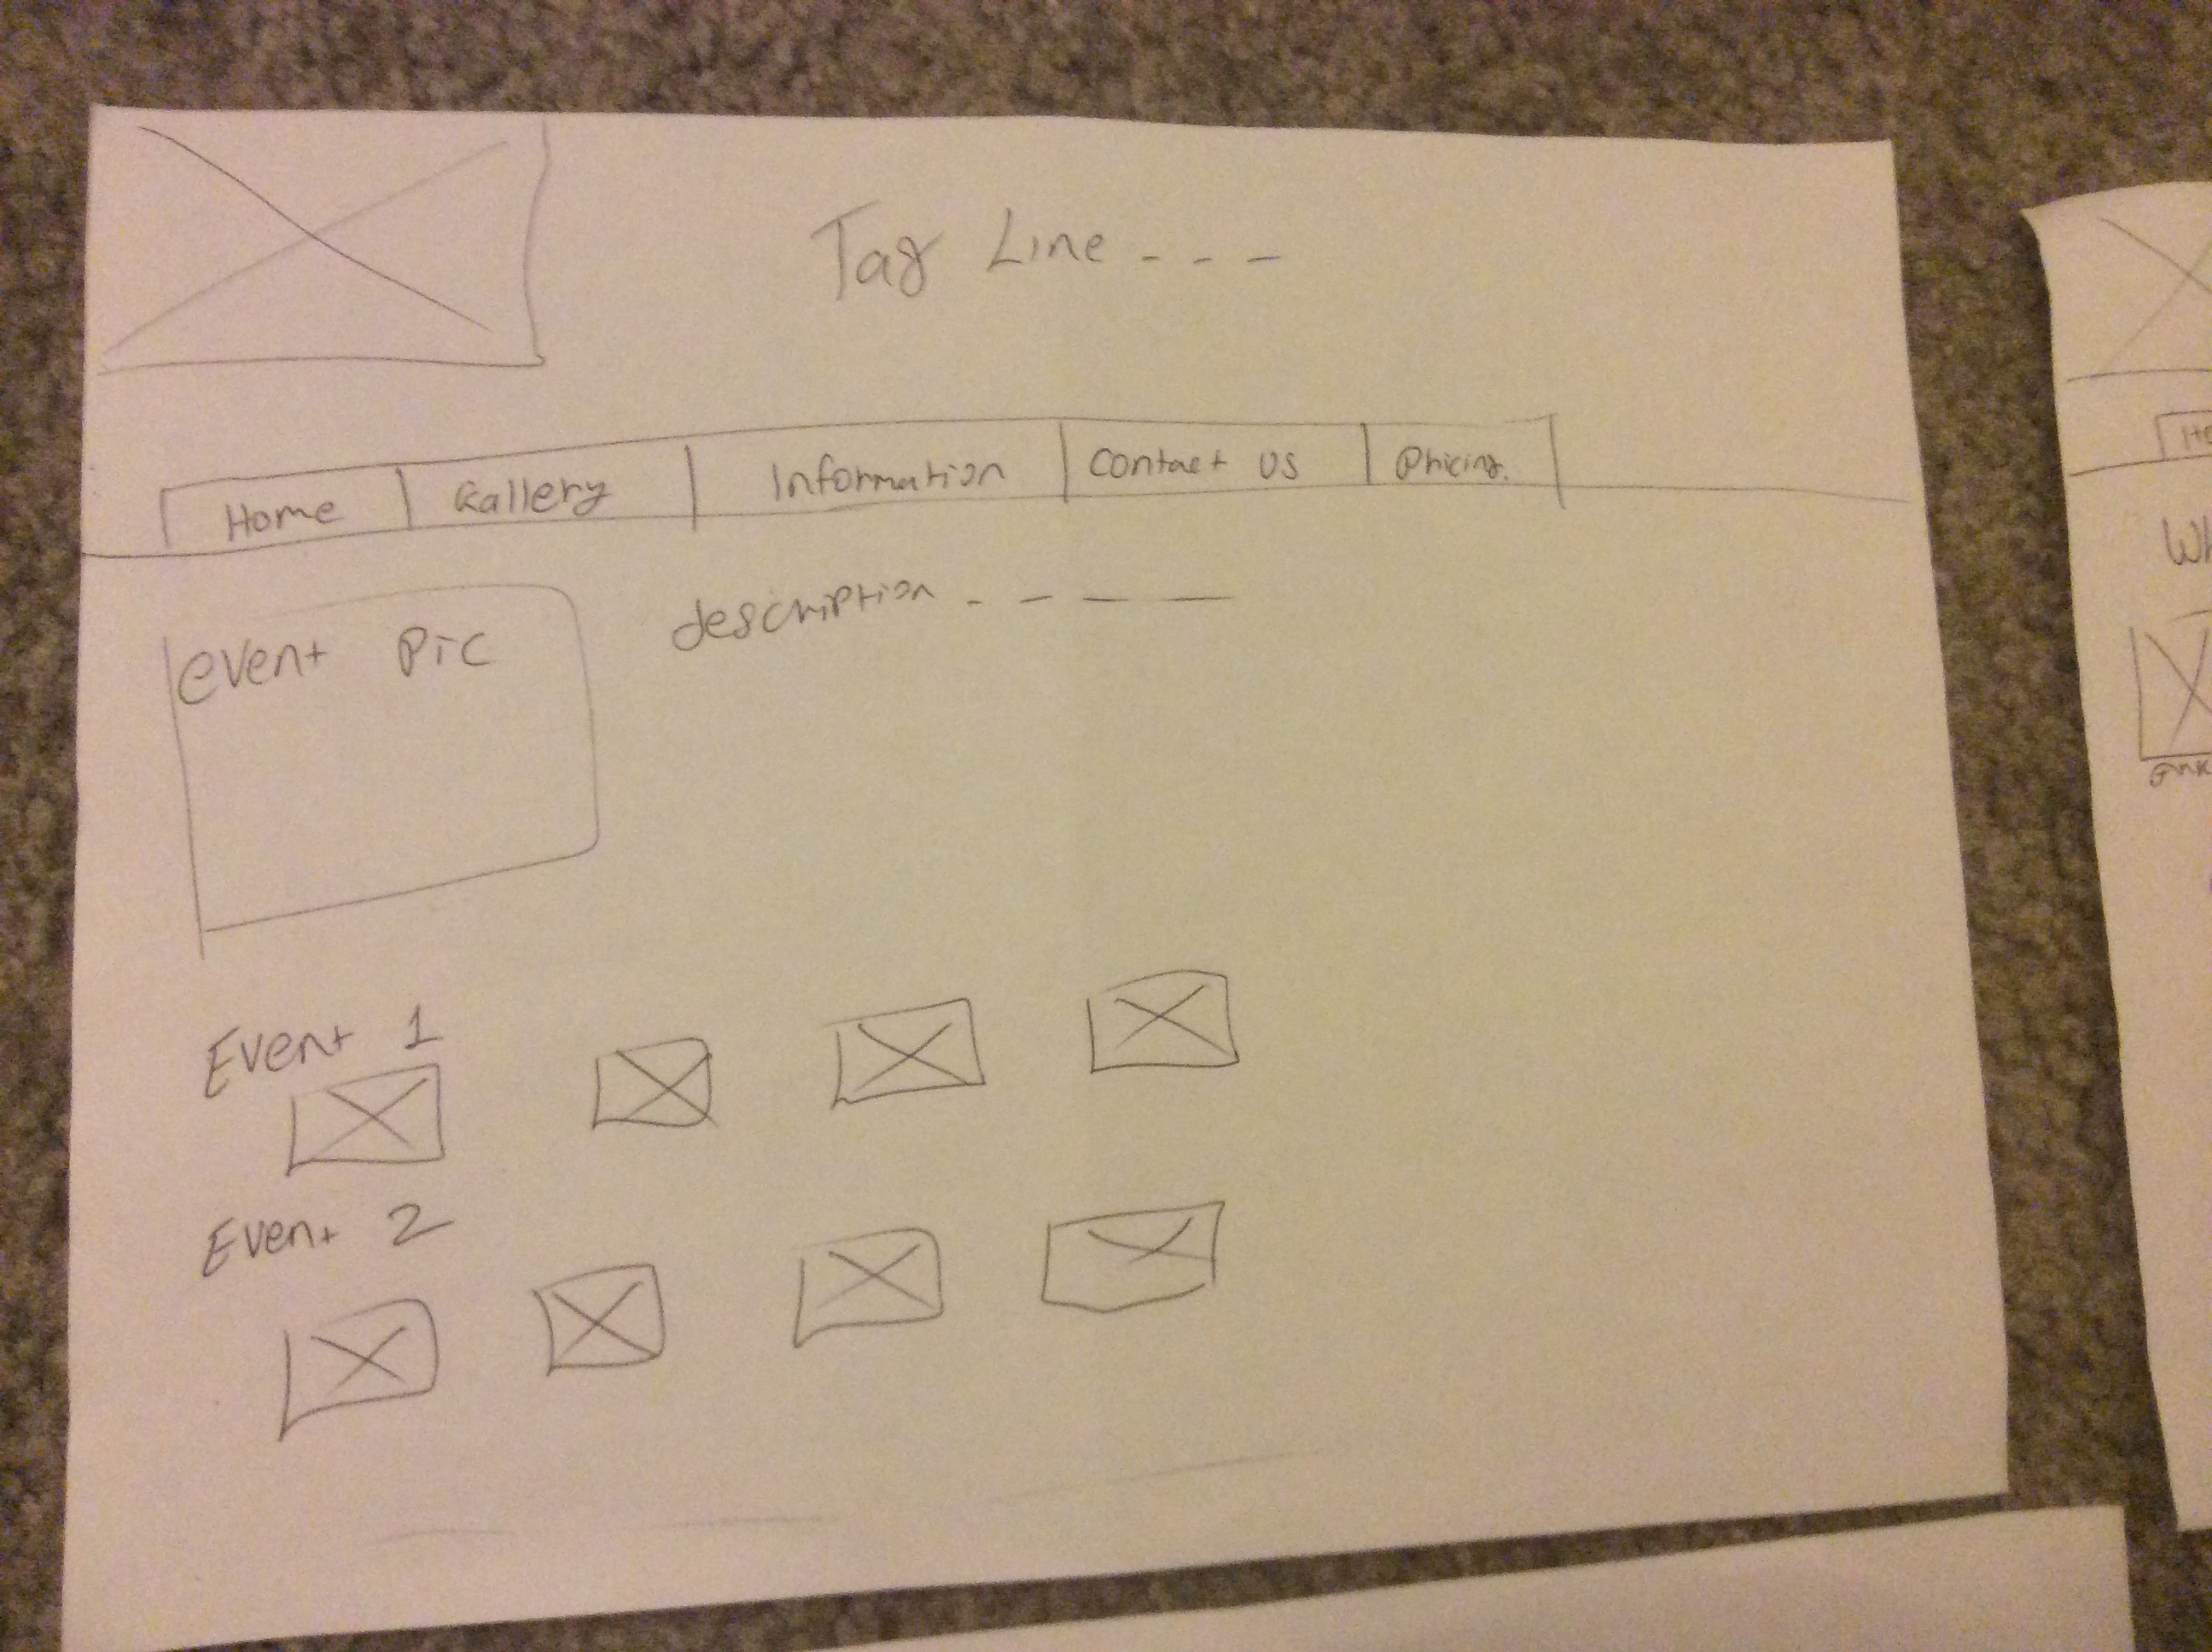 Tag Line - - -
Home | Gallery | Information | Contact us | Pricing
event pic
description - - - -
Event 1
Event 2